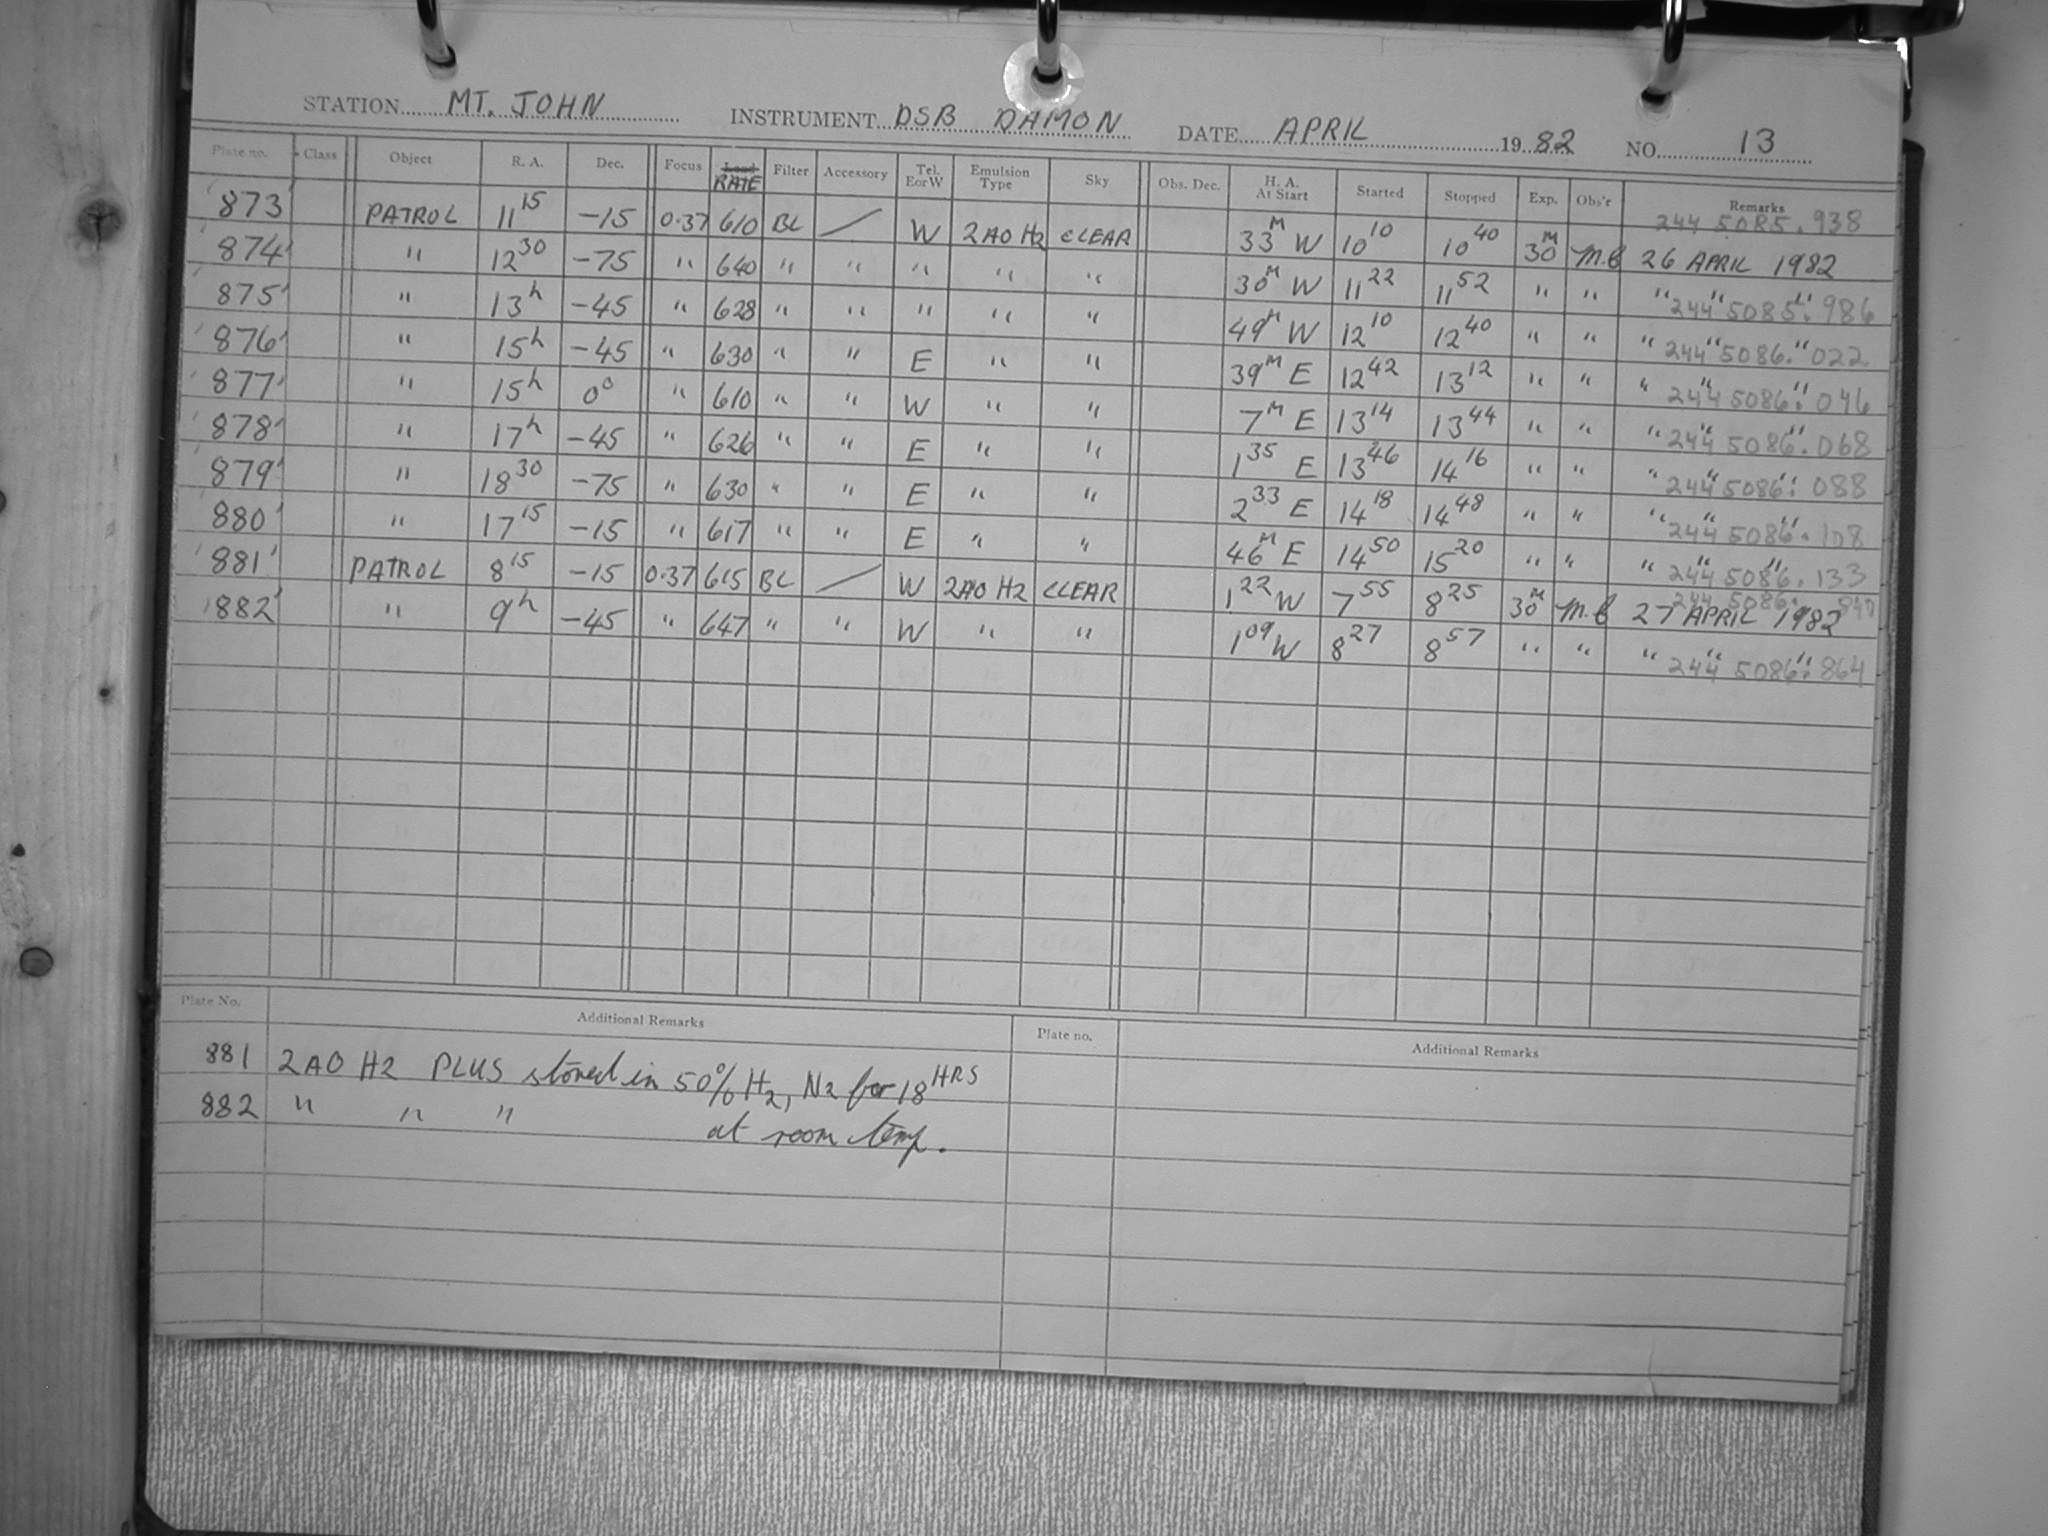 STATION MT. JOHN INSTRUMENT DSB DAMON DATE APRIL 1982 NO. 13
Plate no. Class Object R. A. Dec. Focus RATE Filter Accessory Tel. E or W Emulsion Type Sky Obs. Dec. H. A. At Start Started Stopped Exp. Obs'r Remarks
244 5085.938
873 PATROL 11 15 -15 0.37 610 BL / W 2AO H2 CLEAR 33 M W 10 10 10 40 30 M 26 APRIL 1982
874 " 12 30 -75 " 640 " " " " " 30 M W 11 22 11 52 " " " " " 244 5085.986
875 " 13 h -45 " 628 " " " " " 49 M W 12 10 12 40 " " " " " 244 5086.022
876 " 15 h -45 " 630 " " E " " 39 M E 12 42 13 12 " " " " " 244 5086.046
877 " 15 h 0° " 610 " " W " " 7 M E 13 14 13 44 " " " " " 244 5086.068
878 " 17 h -45 " 626 " " E " " 1 35 E 13 46 14 16 " " " " " 244 5086.088
879 " 18 30 -75 " 630 " " E " " 2 33 E 14 18 14 48 " " " " " 244 5086.108
880 " 17 15 -15 " 617 " " E " " 46 M E 14 50 15 20 " " " " " 244 5086.133
881 PATROL 8 15 -15 0.37 615 BL / W 2AO H2 CLEAR 1 22 W 7 55 8 25 30 M 27 APRIL 1982
882 " 9 h -45 " 647 " " W " " 1 09 W 8 27 8 57 " " " " " 244 5086.864
Plate No. Additional Remarks Plate no. Additional Remarks
881 2AO H2 PLUS stored in 50% H2, N2 for 18 HRS
882 " " " at room temp.